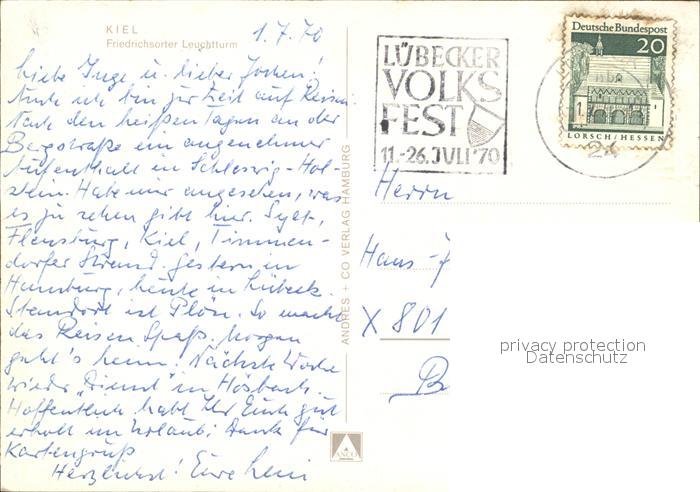 KIEL
Friedrichsorter Leuchtturm
1.7.70
Liebe Inge u. lieber Jochen!
Auch ich bin zur Zeit auf Reisen.
Nach den heißen Tagen an der
Bergstraße ein angenehmer
Aufenthalt in Schleswig-Hol-
stein. Habe mir angesehen, was
es zu sehen gibt hier. Sylt,
Flensburg, Kiel, Timmen-
dorfer Strand. Gestern in
Hamburg, heute in Lübeck.
Standort ist Plön. So macht
das Reisen Spaß. Morgen
geht's heim. Nächste Woche
wieder "Dienst" in Hösbach.
Hoffentlich habt Ihr Euch gut
erholt im Urlaub; Dank für
Kartengruß
Herzlichst! Eure
ANDRES + CO VERLAG HAMBURG
ANCO
LÜBECKER
VOLKS
FEST
11.-26. JULI '70
Deutsche Bundespost
20
LORSCH/HESSEN
24
Herrn
Hans-J
X 801
privacy protection
Datenschutz